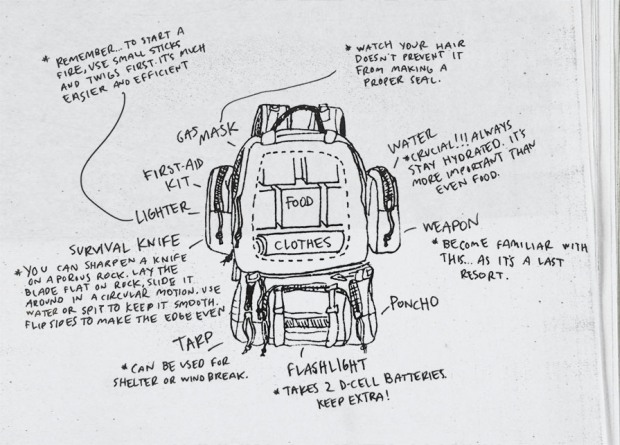 * REMEMBER... TO START A
FIRE, USE SMALL STICKS
AND TWIGS FIRST. IT'S MUCH
EASIER AND EFFICIENT
* WATCH YOUR HAIR
DOESN'T PREVENT IT
FROM MAKING A
PROPER SEAL.
GAS MASK
FIRST-AID
KIT
LIGHTER
SURVIVAL KNIFE
* YOU CAN SHARPEN A KNIFE
ON A POROUS ROCK. LAY THE
BLADE FLAT ON ROCK, SLIDE IT
AROUND IN A CIRCULAR MOTION. USE
WATER OR SPIT TO KEEP IT SMOOTH.
FLIP SIDES TO MAKE THE EDGE EVEN
FOOD
CLOTHES
WATER
* CRUCIAL!!! ALWAYS
STAY HYDRATED. IT'S
MORE IMPORTANT THAN
EVEN FOOD.
WEAPON
* BECOME FAMILIAR WITH
THIS... AS IT'S A LAST
RESORT.
PONCHO
TARP
* CAN BE USED FOR
SHELTER OR WINDBREAK.
FLASHLIGHT
* TAKES 2 D-CELL BATTERIES.
KEEP EXTRA!